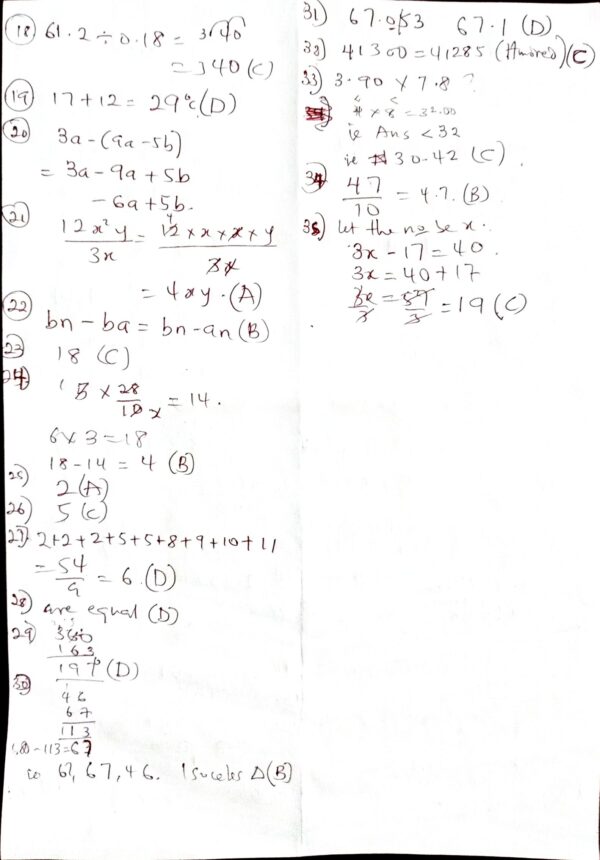 18) 61.2 ÷ 0.18 = 340
= 340 (C)
19) 17 + 12 = 29°C (D)
20) 3a - (9a - 5b)
= 3a - 9a + 5b
- 6a + 5b.
21) 12x²y / 3x = 12 × x × x × y / 3x
= 4xy. (A)
22) bn - ba = bn - an (B)
23) 18 (C)
24) 5 × 28/10 = 14.
6 × 3 = 18
18 - 14 = 4 (B)
25) 2 (A)
26) 5 (C)
27) 2+2+2+5+5+8+9+10+11
= 54/9 = 6. (D)
28) are equal (D)
29) 360
163
197 (D)
30) 46
67
113
180 - 113 = 67
is 67, 67, 46. Isoceles Δ (B)
31) 67.053 67.1 (D)
32) 41300 = 41285 (Hundred) (C)
33) 3.90 × 7.8 ?
4 × 8 = 32.00
ie Ans < 32
ie 30.42 (C).
34) 47/10 = 4.7. (B)
35) let the no be x.
3x - 17 = 40.
3x = 40 + 17
3x/3 = 57/3 = 19 (C)